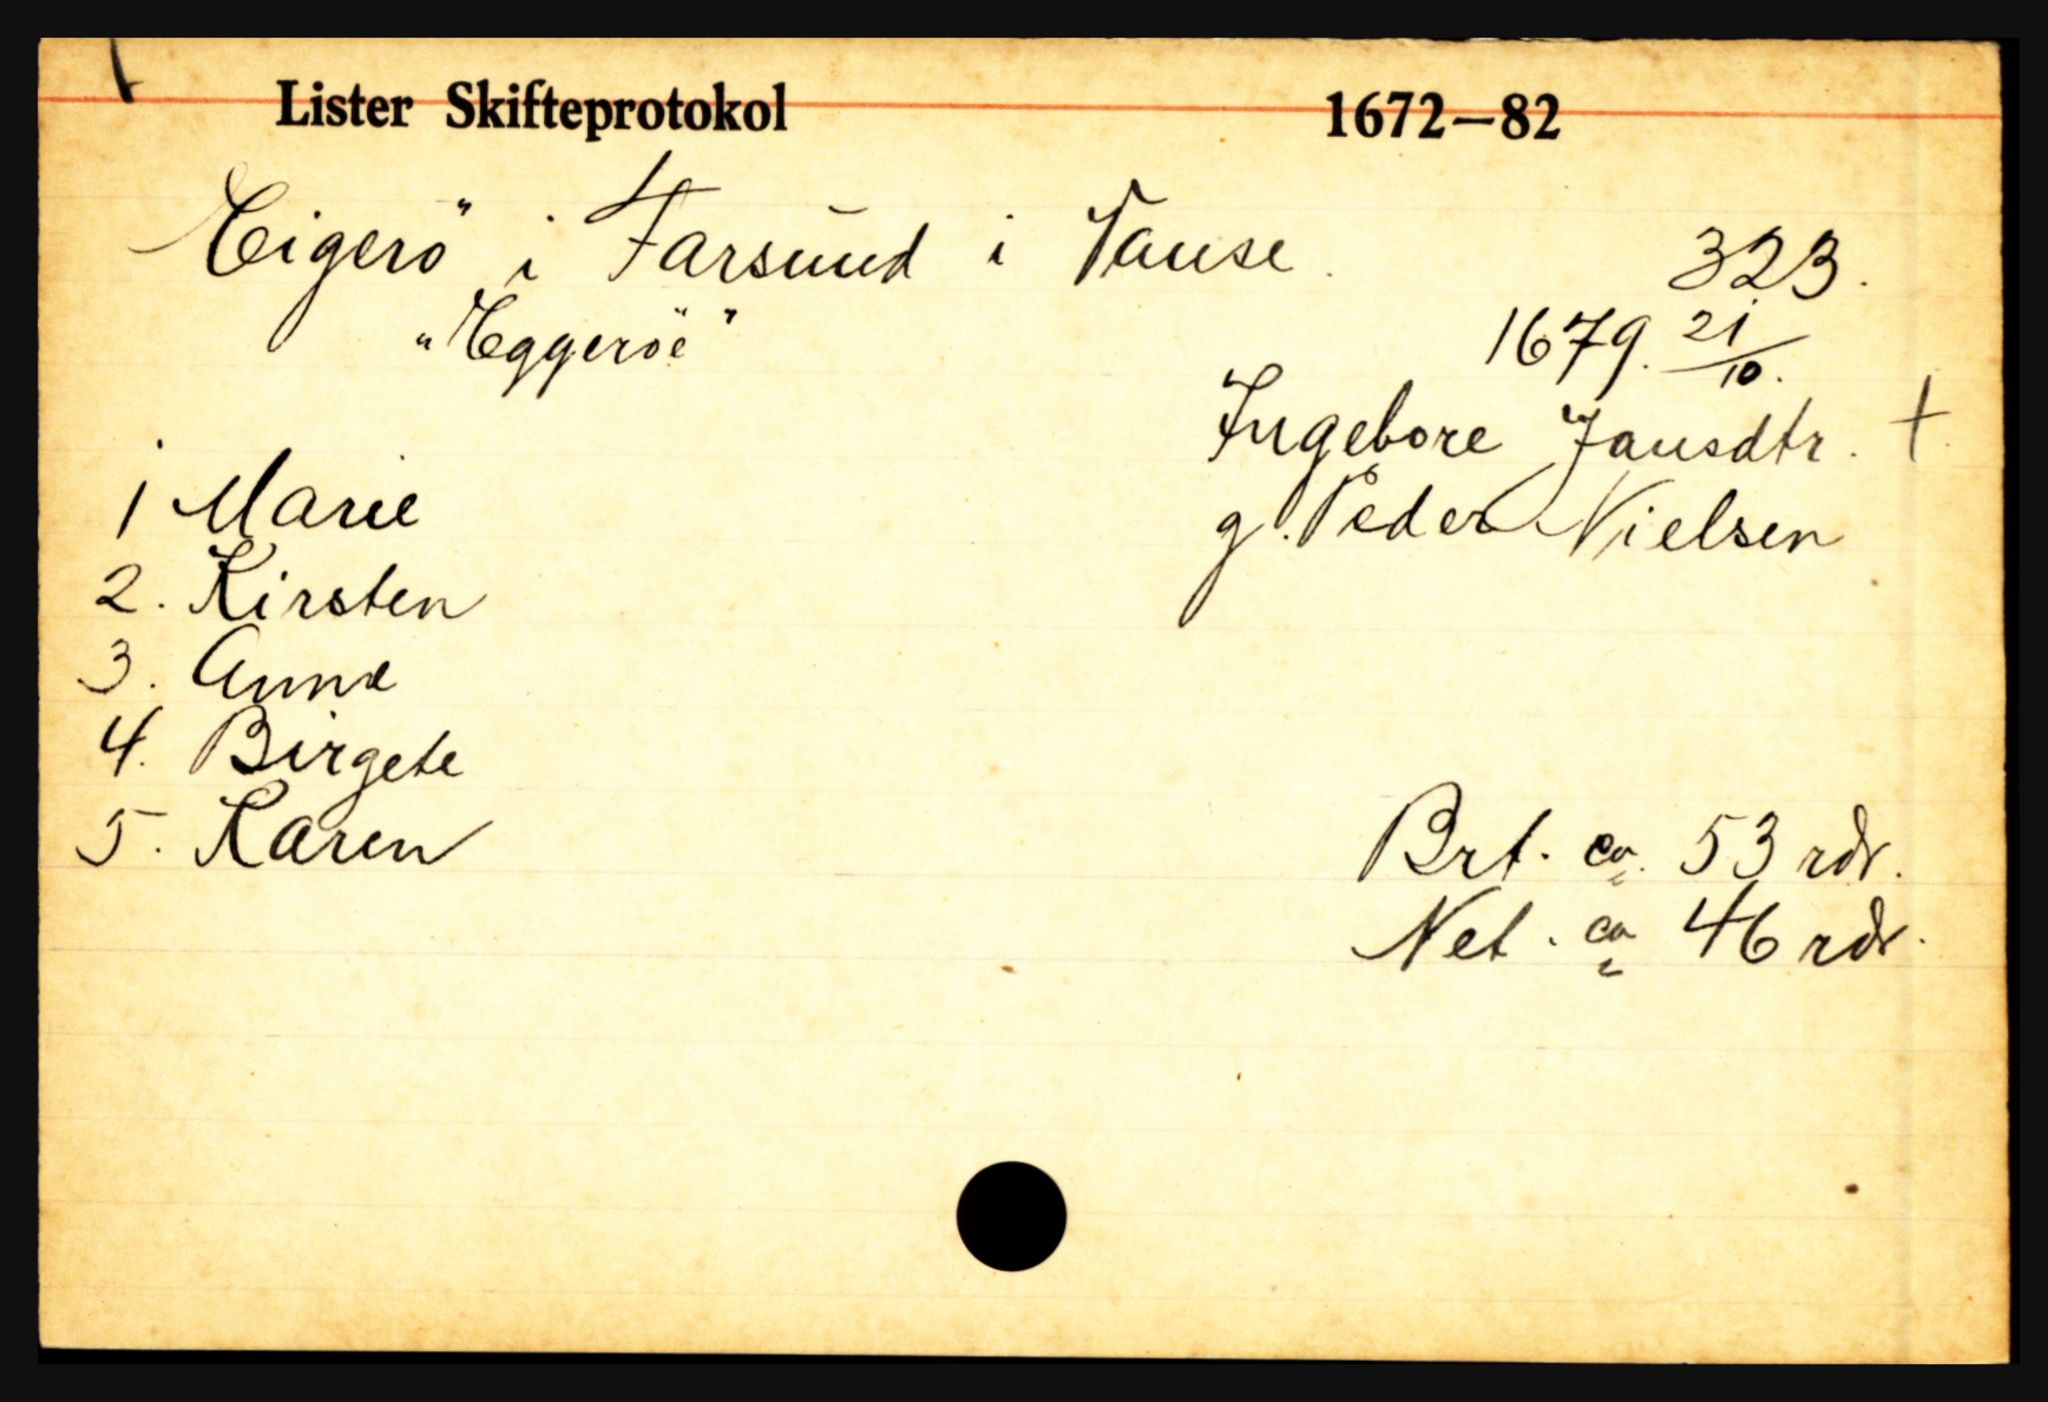 Lister Skifteprotokol 1672—82
Eigerö i Farsund i Vanse. 323.
"Eggeröe" 1679. 21/10.
Ingebore Jansdtr. †
g. Peder Nielsen
1 Marie
2. Kirsten
3. Anne
4. Birgete
5. Karen
Brt. ca. 53 rdr.
Net. ca 46 rdr.